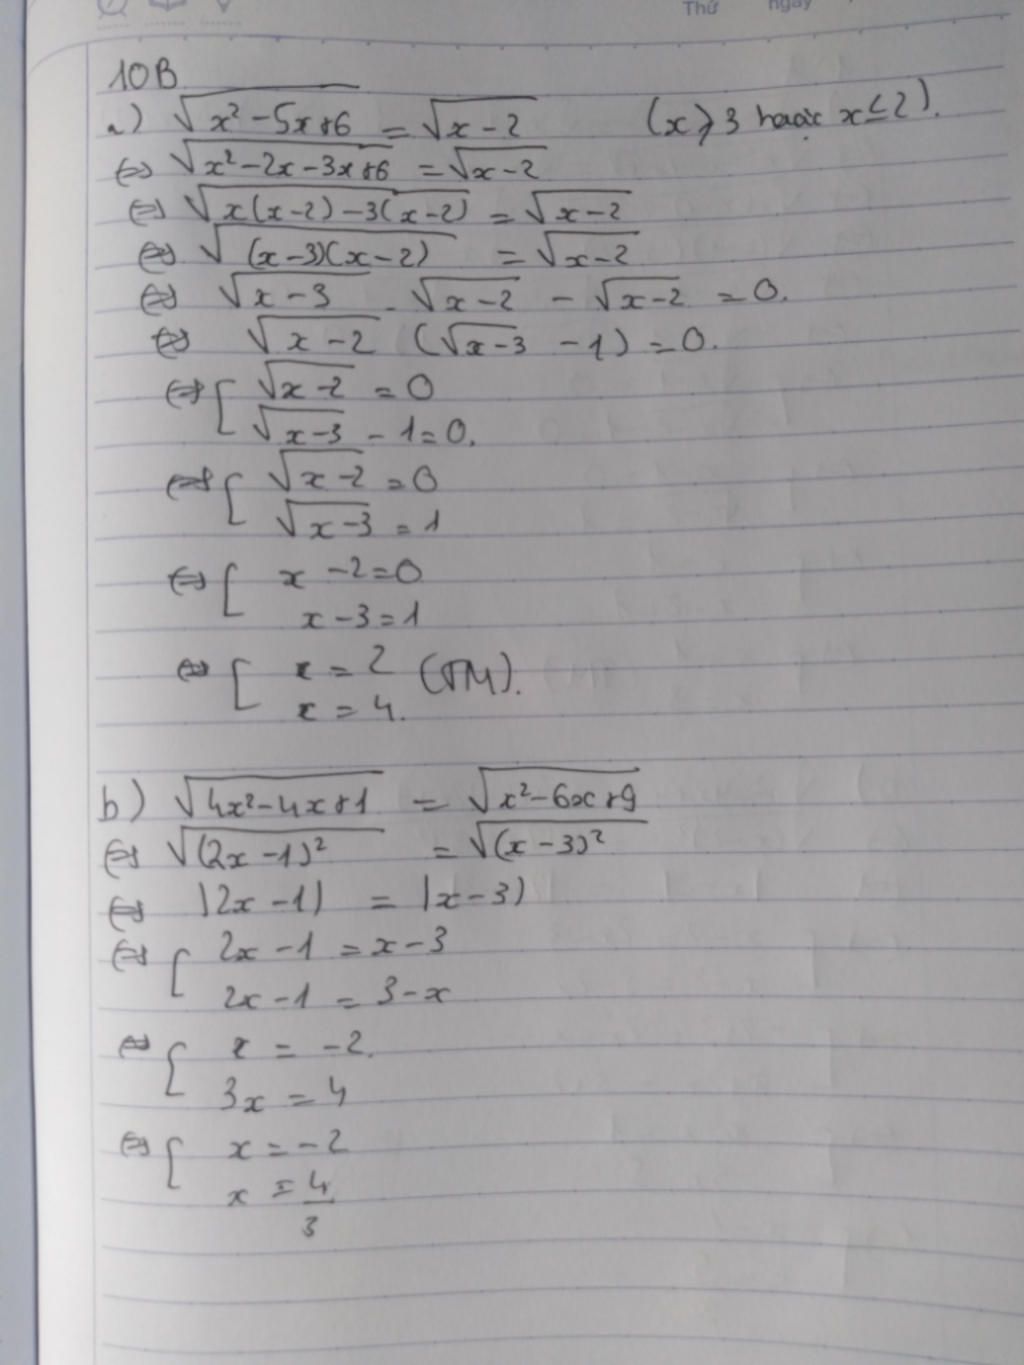 Thứ ngày
10B
a) √(x² - 5x + 6) = √(x - 2) (x ≥ 3 hoặc x ≤ 2).
⇔ √(x² - 2x - 3x + 6) = √(x - 2)
⇔ √(x(x - 2) - 3(x - 2)) = √(x - 2)
⇔ √((x - 3)(x - 2)) = √(x - 2)
⇔ √(x - 3) . √(x - 2) - √(x - 2) = 0.
⇔ √(x - 2) (√(x - 3) - 1) = 0.
⇔ [ √(x - 2) = 0
√(x - 3) - 1 = 0.
⇔ [ √(x - 2) = 0
√(x - 3) = 1
⇔ [ x - 2 = 0
x - 3 = 1
⇔ [ x = 2 (TM).
x = 4.
b) √(4x² - 4x + 1) = √(x² - 6x + 9)
⇔ √((2x - 1)²) = √((x - 3)²)
⇔ |2x - 1| = |x - 3|
⇔ [ 2x - 1 = x - 3
2x - 1 = 3 - x
⇔ [ x = -2.
3x = 4
⇔ [ x = -2
x = 4/3